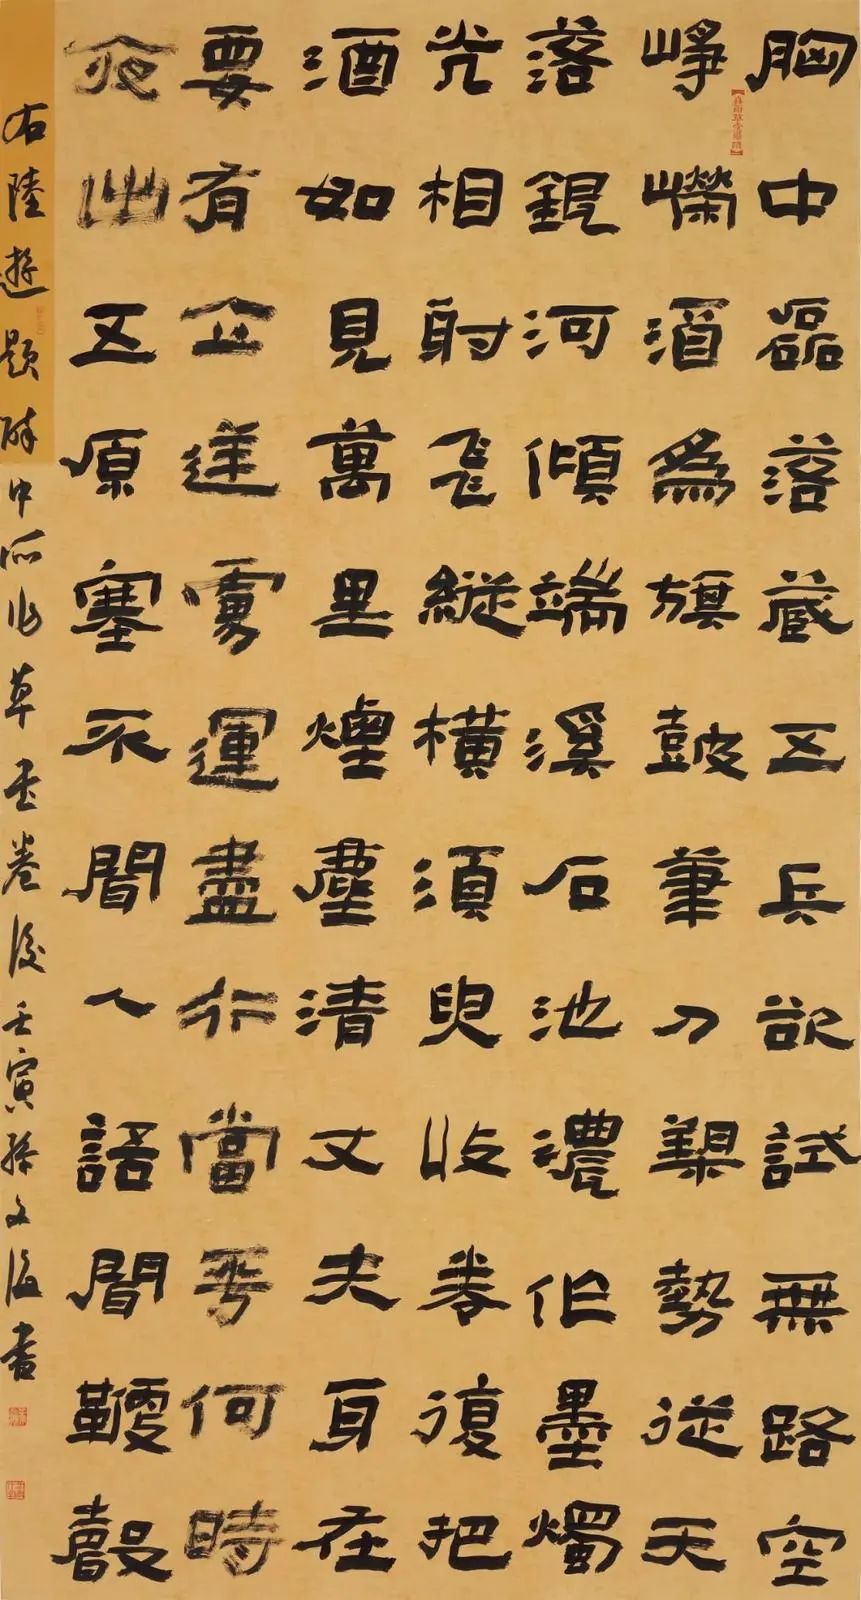 胸中磊落藏五兵欲試無路空
崢嶸酒為旗鼓筆刀槊勢從天
落銀河傾端溪石池濃作墨燭
光相射飛縱橫須臾收卷復把
酒如見萬里煙塵清丈夫身在
要有立逆虜運盡行當平何時
夜出五原塞不聞人語聞鞭聲
右陸遊題醉中所作草書卷後壬寅孫文海書